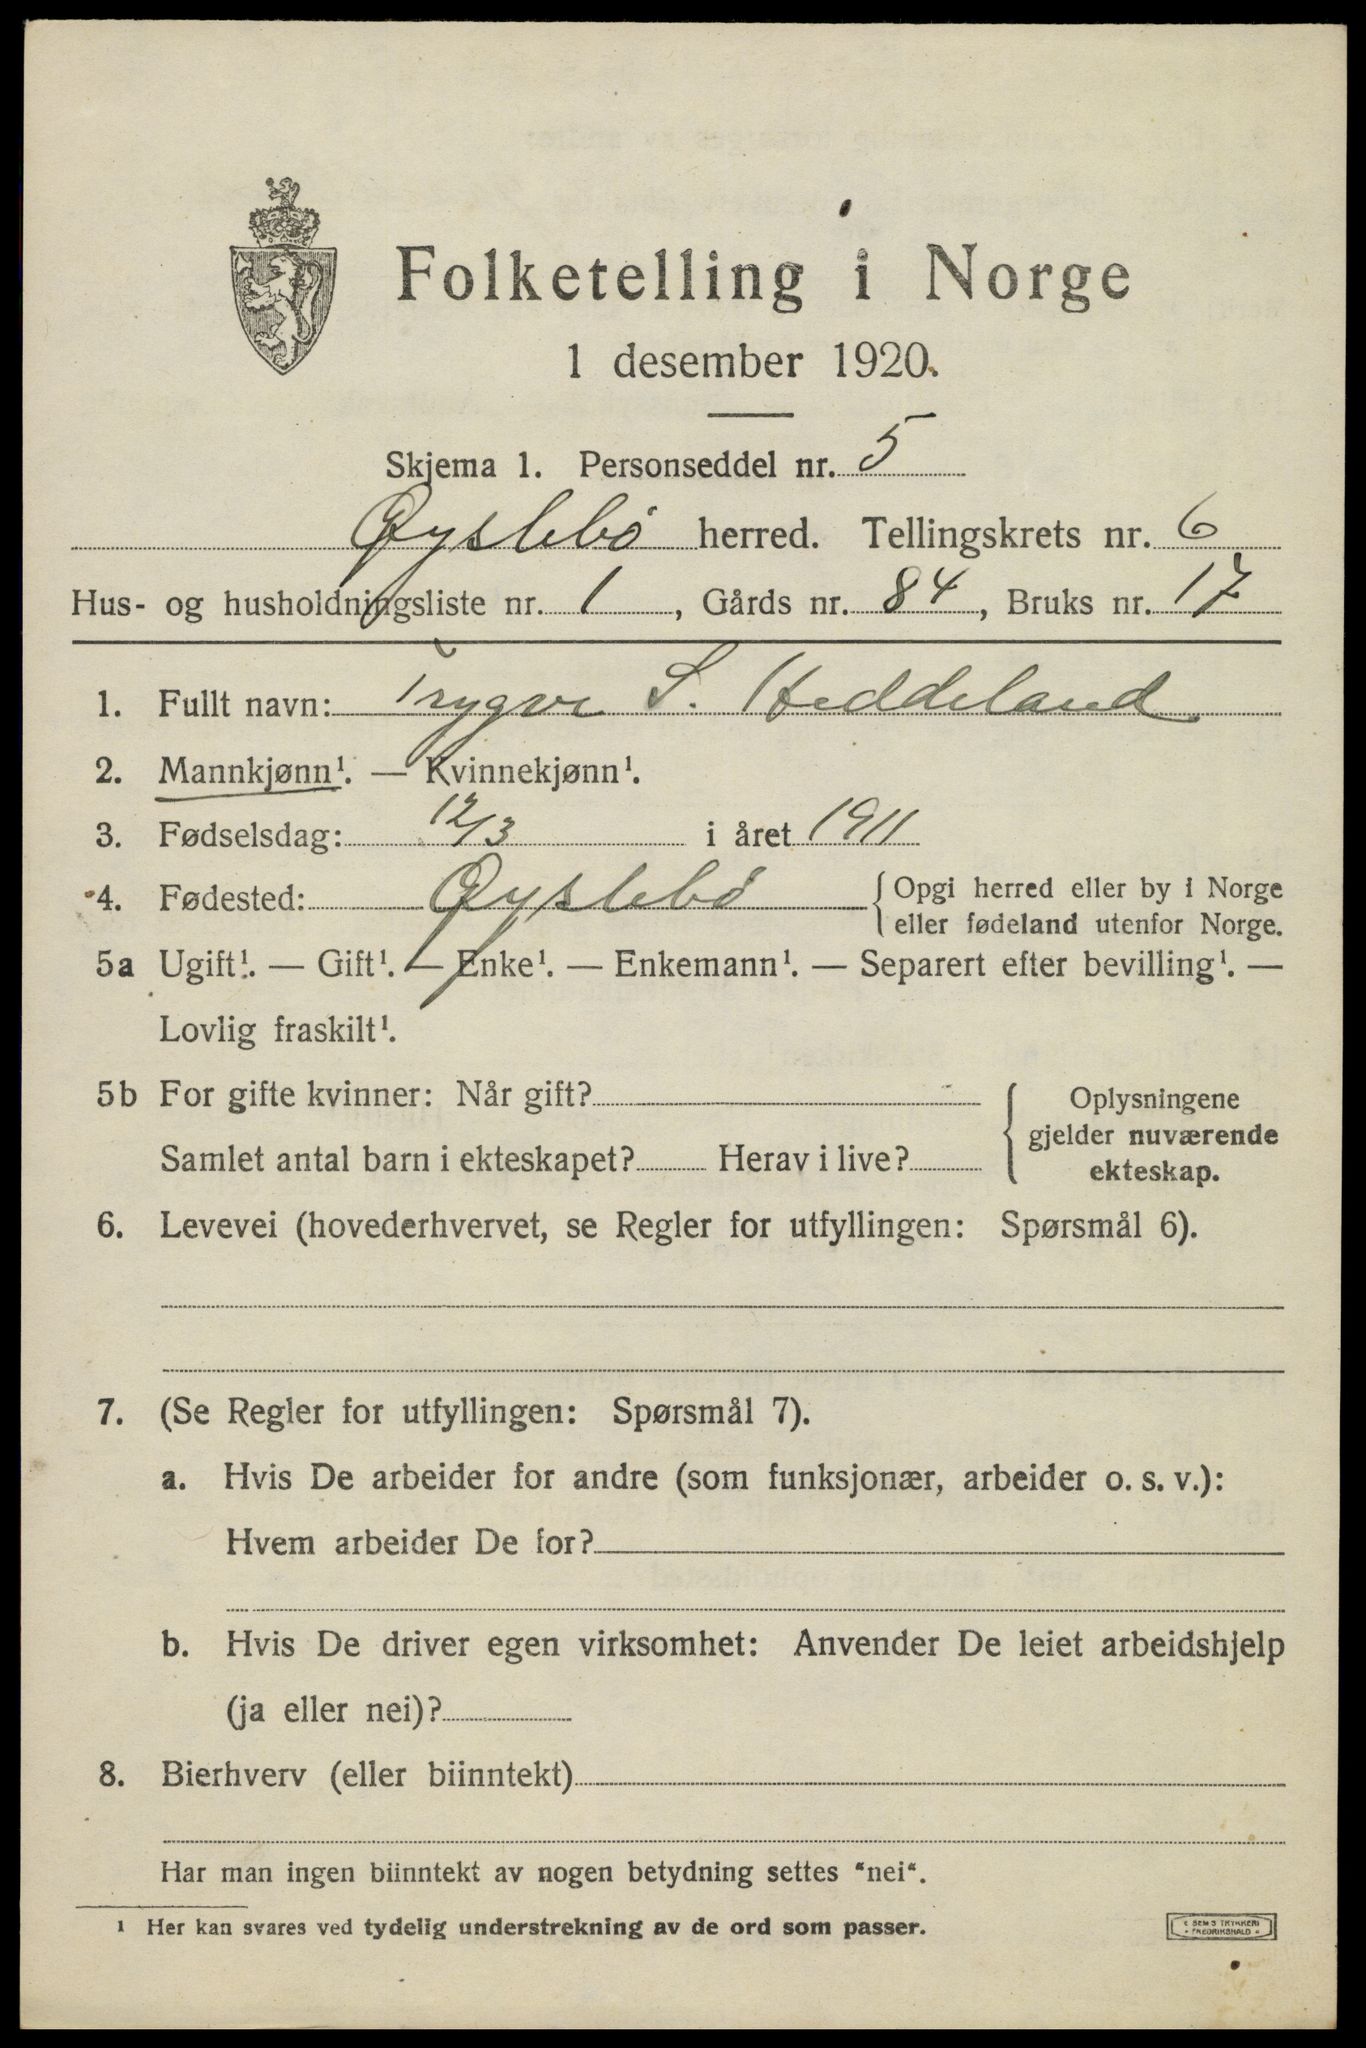 Folketelling i Norge
1 desember 1920.
Skjema 1. Personseddel nr. 5
Øyslebö herred. Tellingskrets nr. 6
Hus- og husholdningsliste nr. 1, Gårds nr. 84, Bruks nr. 17
1. Fullt navn: Trygve S. Heddeland
2. Mannkjønn¹. — Kvinnekjønn¹.
3. Fødselsdag: 12/3 i året 1911
4. Fødested: Øyslebö { Opgi herred eller by i Norge
eller fødeland utenfor Norge.
5a Ugift¹. — Gift¹. — Enke¹. — Enkemann¹. — Separert efter bevilling¹. —
Lovlig fraskilt¹.
5b For gifte kvinner: Når gift?
Samlet antal barn i ekteskapet? Herav i live?
Oplysningene
gjelder nuværende
ekteskap.
6. Levevei (hovederhvervet, se Regler for utfyllingen: Spørsmål 6).
7. (Se Regler for utfyllingen: Spørsmål 7).
a. Hvis De arbeider for andre (som funksjonær, arbeider o. s. v.):
Hvem arbeider De for?
b. Hvis De driver egen virksomhet: Anvender De leiet arbeidshjelp
(ja eller nei)?
8. Bierhverv (eller biinntekt)
Har man ingen biinntekt av nogen betydning settes "nei".
¹ Her kan svares ved tydelig understrekning av de ord som passer.
E SEMS TRYKKERI
FREDRIKSHALD